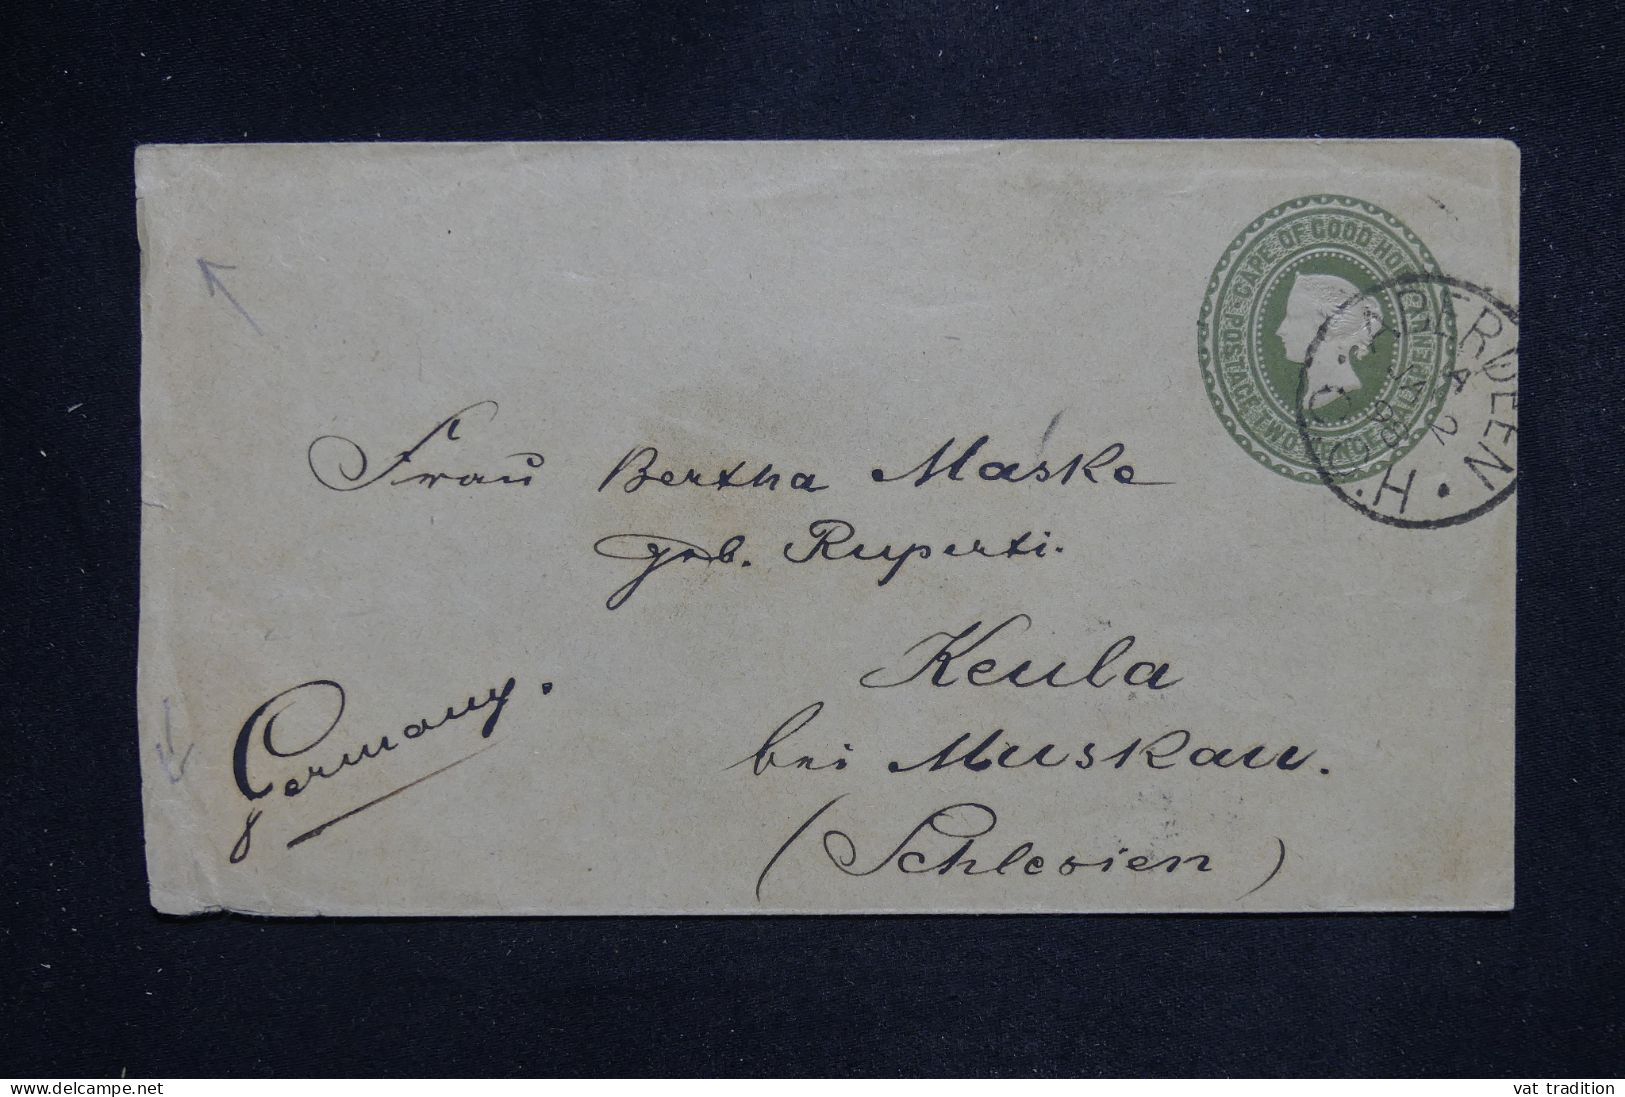 CAPE OF GOOD HOPE
POSTAGE TWO
ABERDEEN
C. G. H.
A
2
Frau Bertha Maske
geb. Ruperti.
Keula
bei Muskau.
(Schlesien)
Germany.
www.delcampe.net
vat tradition